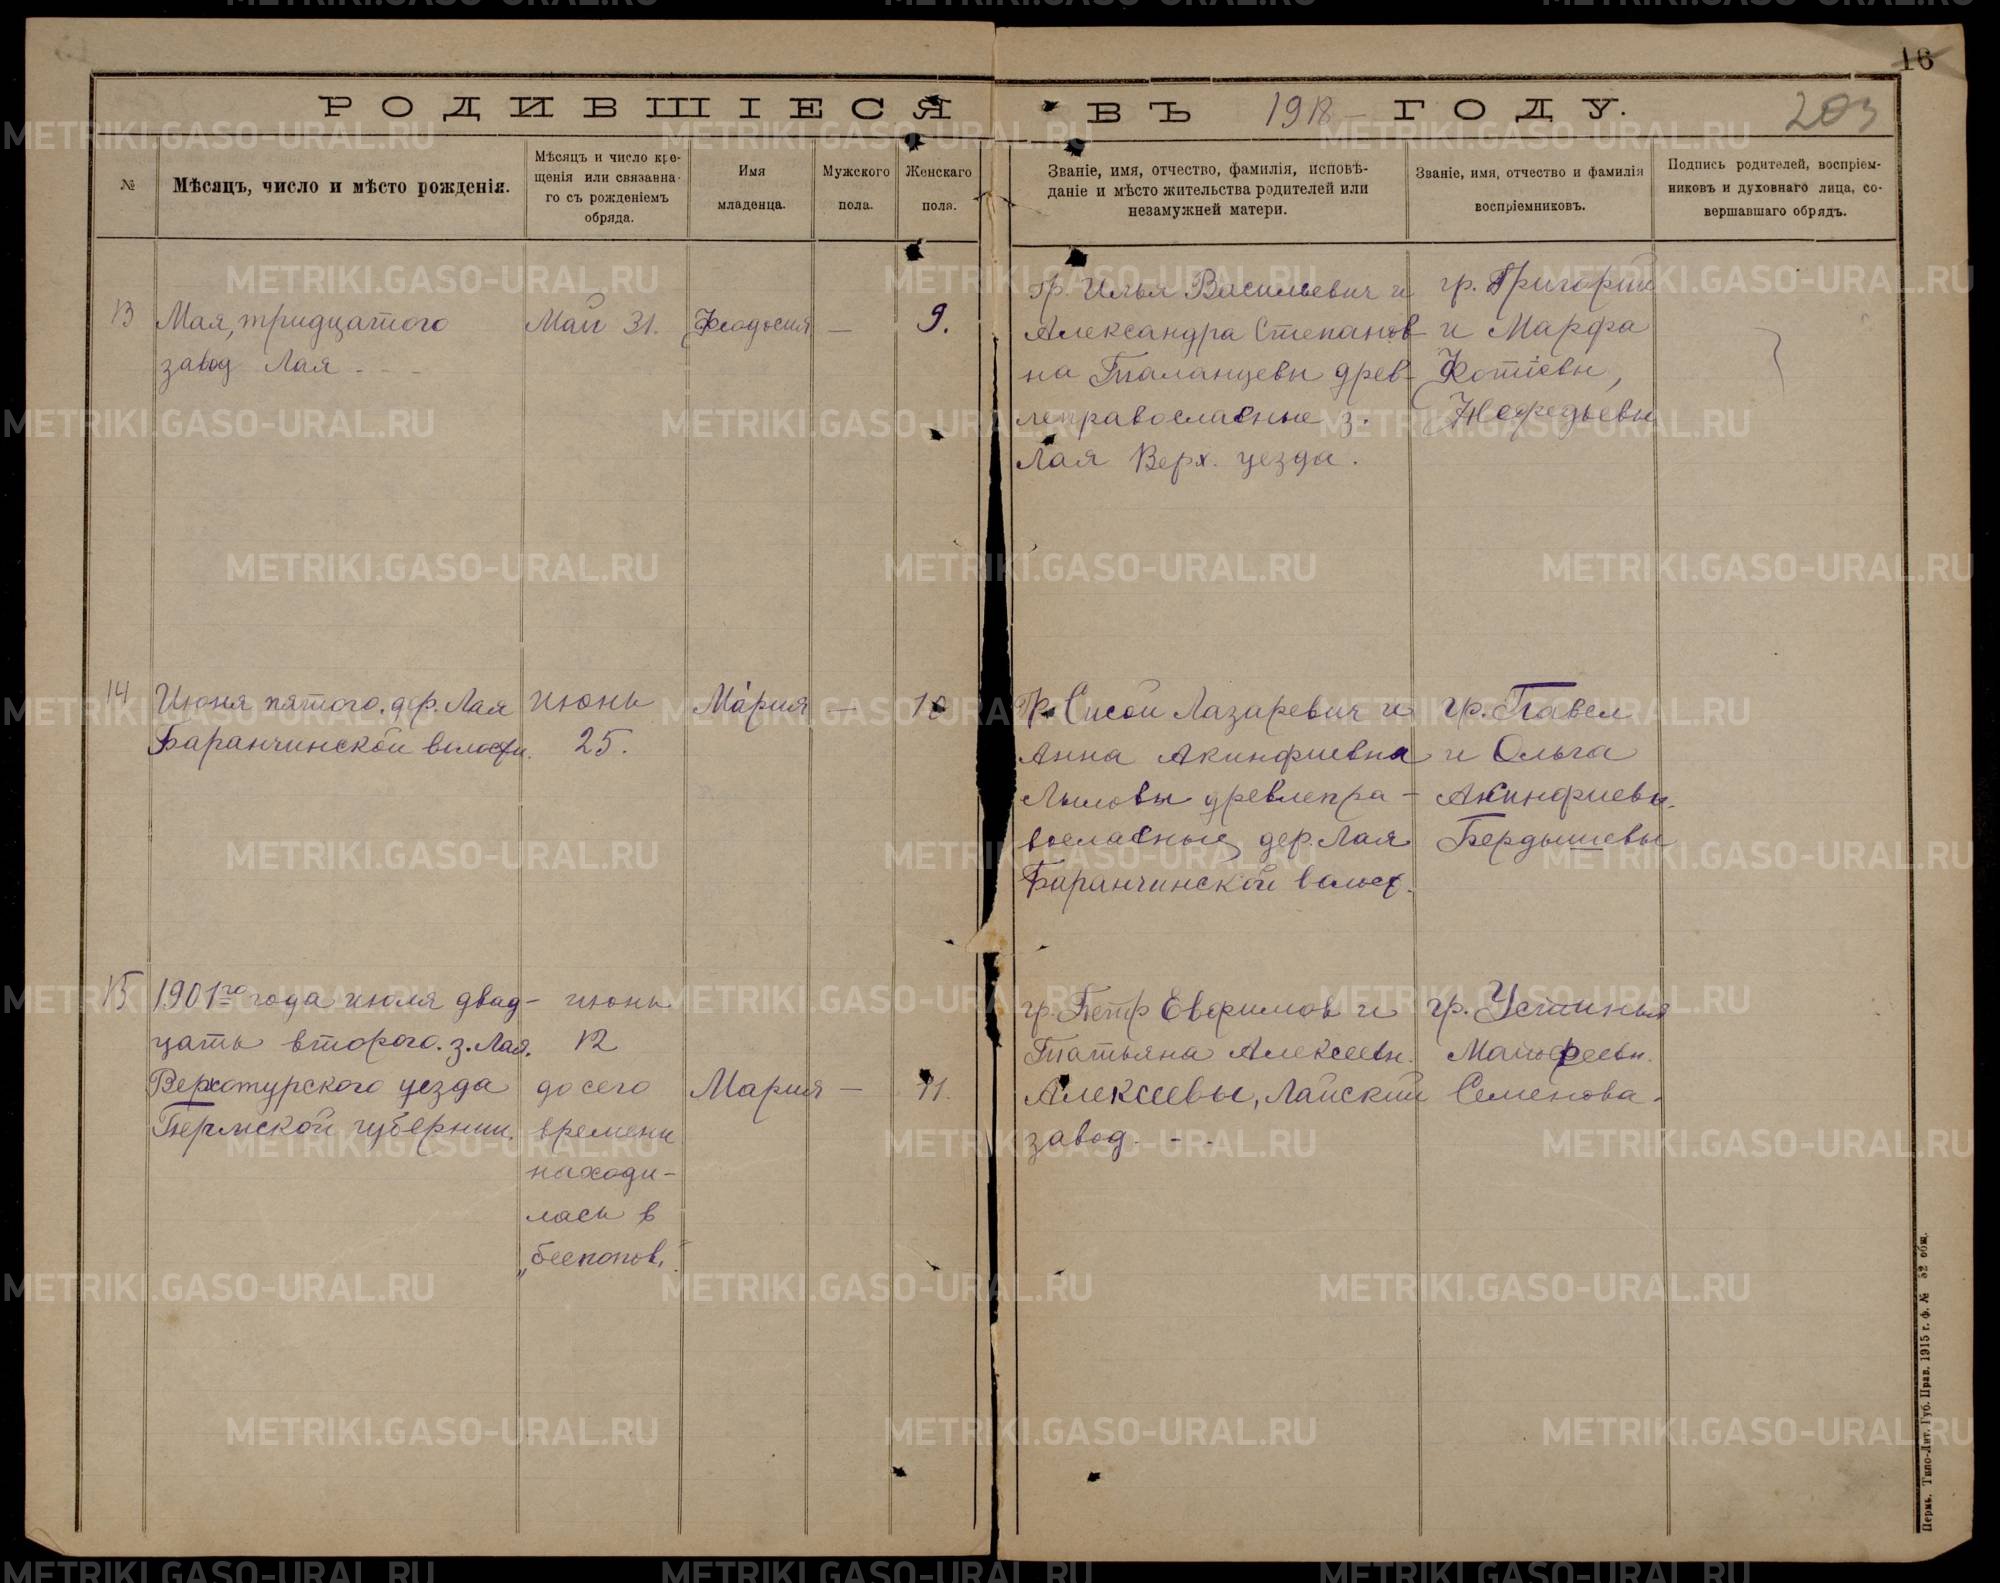 16
РОДИВШІЕСЯ ВЪ 1918 ГОДУ.
203
№
Мѣсяцъ, число и мѣсто рожденія.
Мѣсяцъ и число кре-
щенія или связавна-
го съ рожденіемъ
обряда.
Имя
младенца.
Мужского
пола.
Женскаго
пола.
Званіе, имя, отчество, фамилія, исповѣ-
даніе и мѣсто жительства родителей или
незамужней матери.
Званіе, имя, отчество и фамилія
воспріемниковъ.
Подпись родителей, воспріем-
никовъ и духовнаго лица, со-
вершавшаго обрядъ.
13
Мая, тридцатого
завод Лая - - -
Май 31.
Феодосия
—
9.
Гр. Илья Васильевич и
Александра Степанов-
на Таланцевы древ-
леправославные з.
Лая Верх. уезда.
гр. Григорий
и Марфа
Фотіевы,
Мефедьевы
14
Июня пятого. дер. Лая
Баранчинской волости.
Июнь
25.
Мария
—
10
Гр. Сисой Лазаревич и
Анна Акинфиевна
Лыловы древлепра-
вославные, дер. Лая
Баранчинской волост.
гр. Павел
и Ольга
Акинфиевы.
Бердышевы
15
1901го года июля двад-
цать второго. з. Лая.
Верхотурского уезда
Пермской губернии.
июнь
12
до сего
времени
находи-
лась в
„беспопов."
Мария
—
11.
гр. Петр Евфимов и
Татьяна Алексеевн.
Алексеевы, Лайский
завод. - -
гр. Устинья
Матфеевн.
Семенова.
Пермь. Типо-Лит. Губ. Прав. 1915 г. ф. № 52 общ.
METRIKI.GASO-URAL.RU